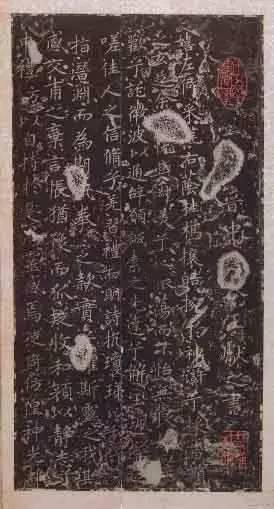 晉中令獻之書
嬉左倚采旄右蔭桂旗攘皓腕於神滸兮采湍瀨
之玄芝余情悅其淑美兮心振蕩而不怡無良
歡兮託微波以通辭願誠素之先達兮解玉珮而要之
嗟佳人之信脩兮羌習禮而明詩抗瓊珶以和
指潛淵而為期執拳之款實兮懼斯靈之我欺
感交甫之棄言悵猶豫而狐疑收和顏以靜志
申禮防以自持於是洛靈感焉徙倚彷徨神光離